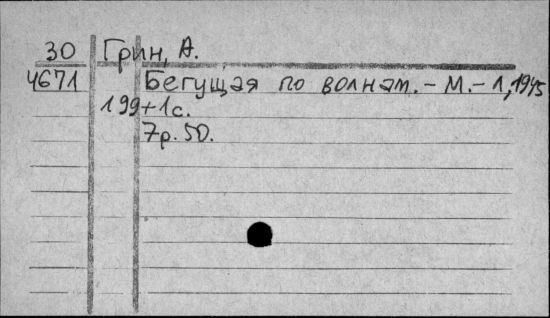 30 Грин, А.
4671 Бегущая по волнам. - М. - Л, 1945
199+1с.
7р. 50.